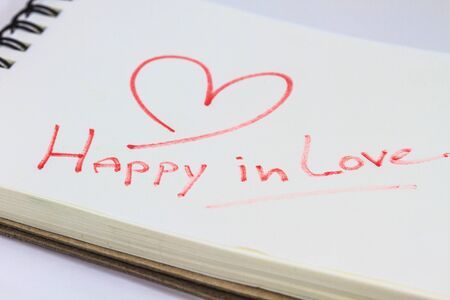 Happy in Love